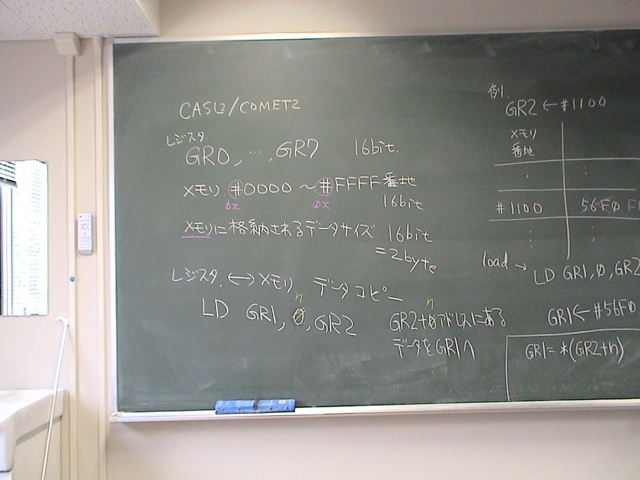 CASL2/COMET2
レジスタ
GR0, …, GR7 16bit.
メモリ #0000 ~ #FFFF番地
0x 0x 16bit
メモリに格納されるデータサイズ 16bit
=2byte
レジスタ ←→ メモリ データコピー
n
LD GR1, 0, GR2
n
GR2+0アドレスにある
データをGR1へ
例.
GR2 ← #1100
メモリ
番地
#1100 56F0
load → LD GR1, 0, GR2
GR1 ← #56F0
GR1 = *(GR2+n)